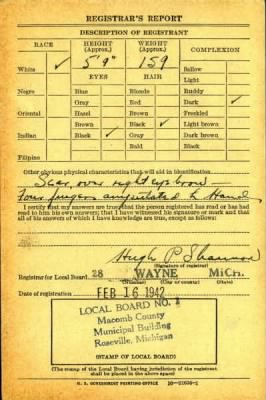 REGISTRAR'S REPORT
DESCRIPTION OF REGISTRANT
RACE HEIGHT (Approx.) WEIGHT (Approx.) COMPLEXION
White ✓ 5'9" 159 Sallow
Light
EYES HAIR
Negro Blue Blonde Ruddy
Gray Red Dark ✓
Oriental Hazel Brown Freckled
Brown Black ✓ Light brown
Indian Black ✓ Gray Dark brown
Bald Black
Filipino
Other obvious physical characteristics that will aid in identification
Scar over right eye brow
Four fingers amputated Hand
I certify that my answers are true; that the person registered has read or has had
read to him his own answers; that I have witnessed his signature or mark and that
all of his answers of which I have knowledge are true, except as follows:
Hugh P Shannon
Registrar for Local Board 28 WAYNE MiCH.
(Number) (City or county) (State)
Date of registration FEB 16 1942
LOCAL BOARD NO. 1
Macomb County
Municipal Building
Roseville, Michigan
(STAMP OF LOCAL BOARD)
(The stamp of the Local Board having jurisdiction of the registrant
shall be placed in the above space)
U. S. GOVERNMENT PRINTING OFFICE